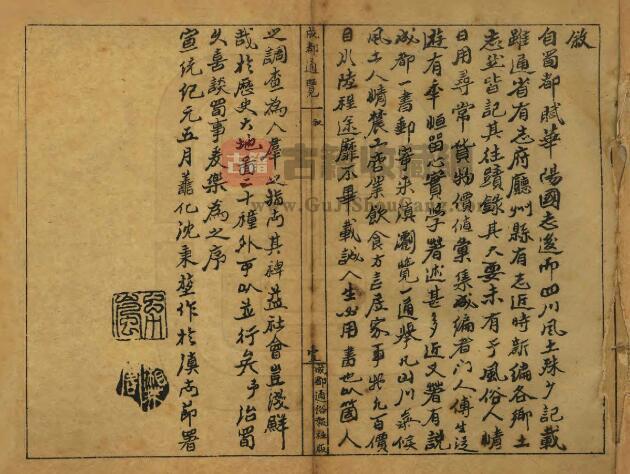 敘
自蜀都賦華陽國志後而四川風土殊少記載
雖通省有志府廳州縣有志近時新編各鄉土
志然皆記其往蹟錄其大要未有于風俗人情
日用尋常貨物價值彙集成編者門人傅生
遊有年恒留心實學著述甚多近又著有說
成都一書郵寄來滇瀏覽一過舉凡山川氣候
風土人情農工商業飲食方言居家事器凡百價
目水陸程途靡不畢載誠人生必用書也以箇人
之調查為人羣之指南其裨益社會豈淺鮮
哉於歷史大地番二十種外可以並行矣予治蜀
久喜談蜀事爰樂為之序
宣統紀元五月蕭化沈秉堃作於滇南節署
成都通覽
敘
壹
成都通俗報社版
古籍收藏
www.GuJiShouCang.com